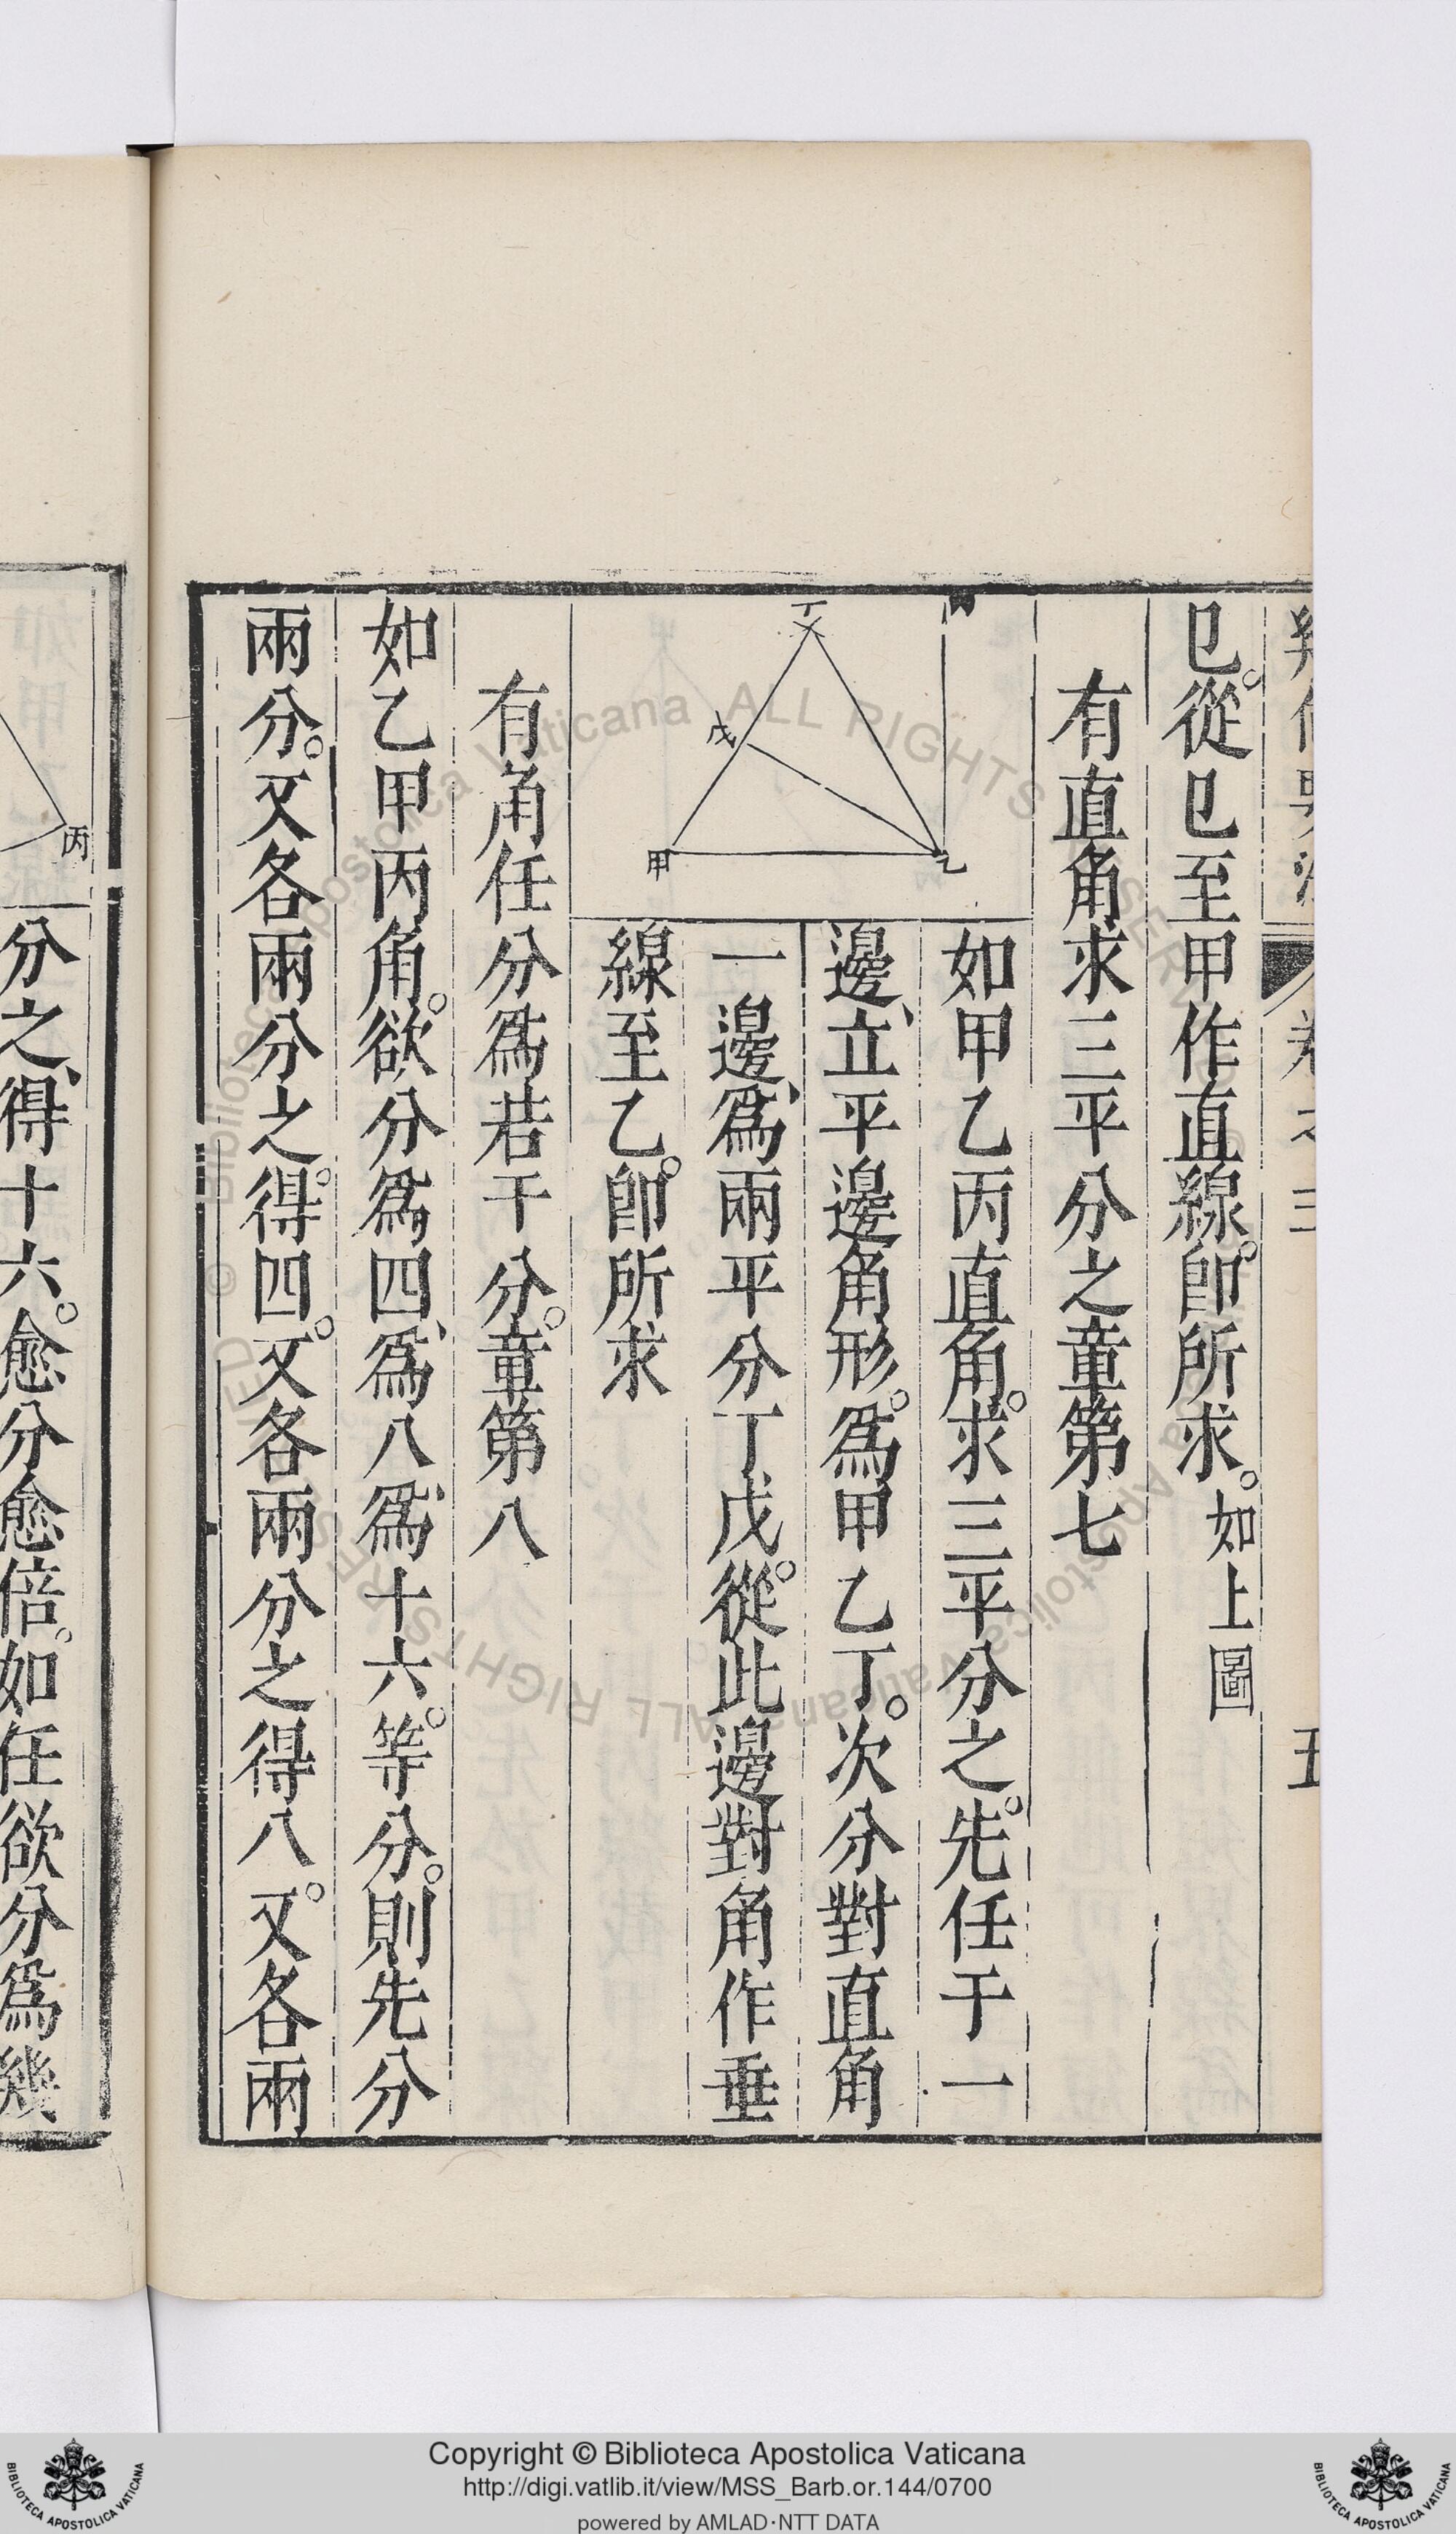 巳。從巳至甲作直線。卽所求。如上圖
有直角求三平分之章第七
丁
戊
甲
乙
如甲乙丙直角。求三平分之。先任于一
邊、立平邊角形。爲甲乙丁。次分對直角
一邊、爲兩平分丁戊。從此邊對角作垂
線至乙。卽所求
有角任分爲若干分。章第八
如乙甲丙角。欲分爲四、爲八、爲十六。等分。則先分
兩分。又各兩分之。得四。又各兩分之得八。又各兩
丙
分之、得十六。愈分愈倍。如任欲分爲幾
卷之三
五
Copyright © Biblioteca Apostolica Vaticana
http://digi.vatlib.it/view/MSS_Barb.or.144/0700
powered by AMLAD·NTT DATA
BIBLIOTECA APOSTOLICA VATICANA
BIBLIOTECA APOSTOLICA VATICANA